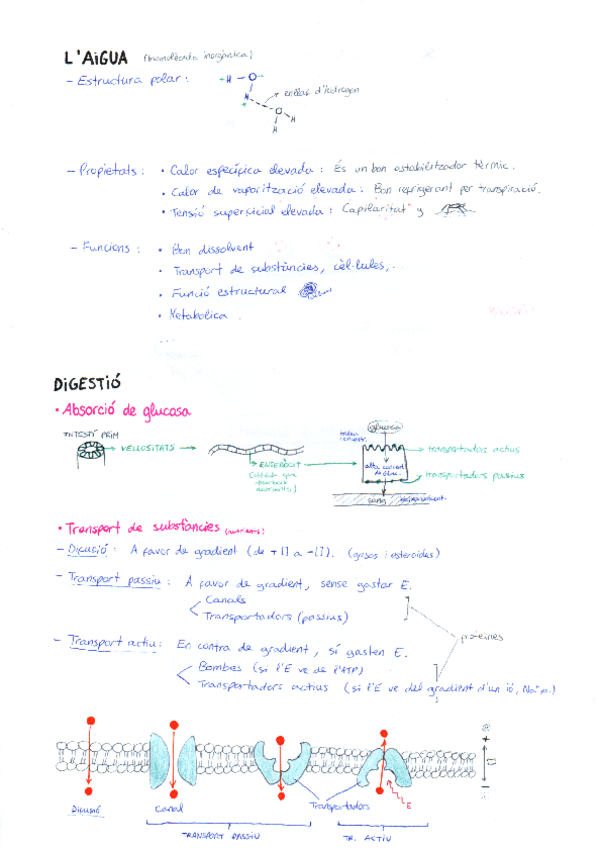 L'AIGUA (biomolècula inorgànica)
- Estructura polar:
+ H - O -
H
+
enllaç d'hidrogen
O
H
H
- Propietats: • Calor específica elevada: És un bon estabilitzador tèrmic.
• Calor de vaporització elevada: Bon refrigerant per transpiració.
• Tensió superficial elevada: Capilaritat y
- Funcions: • Bon dissolvent
• Transport de substàncies, cèl·lules,...
• Funció estructural
• Metabòlica.
...
DIGESTIÓ
• Absorció de glucosa
INTESTÍ PRIM
VELLOSITATS
ENTERÒCIT
(cèl·lula que absorbeix nutrients)
glucosa
baixa concent.
transportadors actius
alta concent. de gluc.
transportadors passius
sang
baixa concent.
• Transport de substàncies (nutrients)
- Difusió: A favor de gradient (de +[] a -[]). (gasos i esteroides)
- Transport passiu: A favor de gradient, sense gastar E.
Canals
Transportadors (passius)
proteïnes
- Transport actiu: En contra de gradient, sí gasten E.
Bombes (si l'E ve de l'ATP)
Transportadors actius (si l'E ve del gradient d'un ió, Na⁺ p.)
+
[]
-
E
Difusió
Canal
Transportadors
TRANSPORT PASSIU
TR. ACTIU